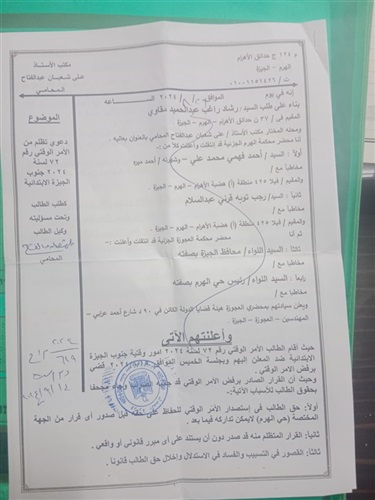 م ١٢٥ ج حدائق الأهرام
الهرم - الجيزة
مكتب الأستاذ
على شعبان عبدالفتاح
المحامي
إنه في يوم الموافق / / ٢٠٢٤ الساعه
بناء على طلب السيد : رشاد راغب عبدالحميد مغاوري
المقيم في / ٣٧ ن حدائق الأهرام -الهرم - الجيزة .
ومحله المختار مكتب الأستاذ / على شعبان عبدالفتاح المحامي بالعنوان بعاليه
أنا محضر محكمة الهرم الجزئية قد انتقلت وأعلنت كلا من :
أولاً : السيد / أحمد فهمي محمد على - وشهرته / أحمد ميزه
مخاطبا مع /
والمقيم / فيلا ٤٢٥ منطقة (أ) هضبة الأهرام - الهرم - الجيزة .
ثانيا : السيد/رجب توبه قرني عبدالسلام
مخاطبا مع /
والمقيم / فيلا ٤٢٥ منطقة (أ) هضبة الأهرام - الهرم - الجيزة .
ثم أنا
محضر محكمة العجوزة الجزئية قد انتقلت وأعلنت :-
ثالثا : السيد اللواء / محافظ الجيزة بصفته
مخاطبا مع /
رابعا : السيد اللواء / رئيس حي الهرم بصفته
مخاطبا مع /
ويعلن سيادتهم بمحضري العجوزة هيئة قضايا الدولة الكائن في ٥٩٠ شارع أحمد عرابي -
المهندسين - العجوزة - الجيزة .
الموضوع
دعوي تظلم من
الأمر الوقتي رقم
٧٢ لسنة
٢٠٢٤ جنوب
الجيزة الابتدائية
كطلب الطالب
وتحت مسؤليته
وكيل الطالب
المحامي
وأعلنتهم الآتي
حيث أقام الطالب الأمر الوقتي رقم ٧٢ لسنة ٢٠٢٤ أمور وقتية جنوب الجيزة
الابتدائية ضد المعلن إليهم وبجلسة الخميس الموافق قضي
برفض الأمر الوقتي .
وحيث أن القرار الصادر برفض الأمر الوقتي قد جاء مجحفا
بحقوق الطالب للأسباب الآتية:
أولاً: حق الطالب في إستصدار الأمر الوقتي للحفاظ على حقه قبل صدور أي قرار من الجهة
المختصة (حي الهرم) لايمكن تداركه فيما بعد .
ثانيا: القرار المتظلم منه قد صدر دون أن يستند على أي مبرر قانوني أو واقعي .
ثالثا : القصور في التسبيب والفساد في الاستدلال وإخلال حق الطالب قانونا .